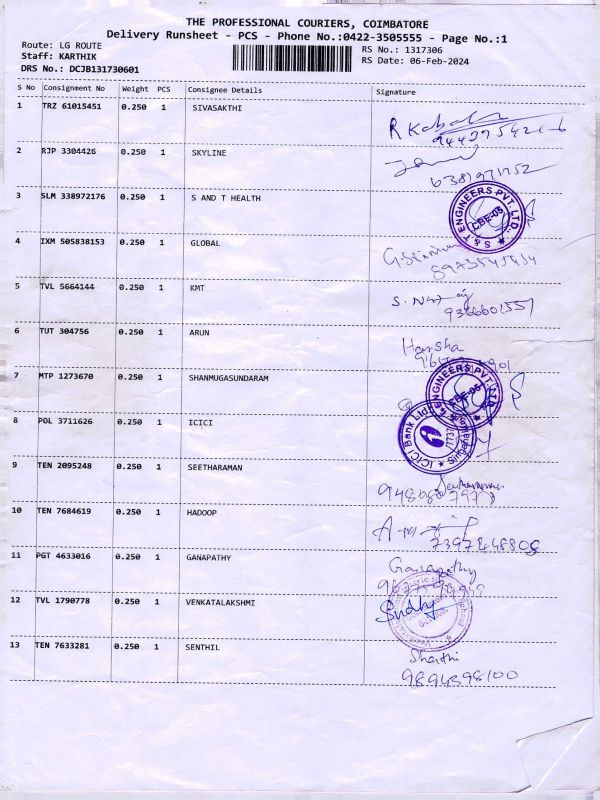 THE PROFESSIONAL COURIERS, COIMBATORE
Delivery Runsheet - PCS - Phone No.:0422-3505555 - Page No.:1
Route: LG ROUTE
RS No.: 1317306
Staff: KARTHIK
RS Date: 06-Feb-2024
DRS No.: DCJB131730601
S No Consignment No Weight PCS Consignee Details Signature
1 TRZ 61015451 0.250 1 SIVASAKTHI
2 RJP 3304426 0.250 1 SKYLINE
3 SLM 338972176 0.250 1 S AND T HEALTH
S & T ENGINEERS PVT. LTD.,
CBE-05
4 IXM 505838153 0.250 1 GLOBAL
5 TVL 5664144 0.250 1 KMT
9366601557
6 TUT 304756 0.250 1 ARUN
Harsha
7 MTP 1273670 0.250 1 SHANMUGASUNDARAM
ENGINEERS PVT. LTD.
CBE-05
8 POL 3711626 0.250 1 ICICI
ICICI Bank Ltd.
9 TEN 2095248 0.250 1 SEETHARAMAN
10 TEN 7684619 0.250 1 HADOOP
7397448808
11 PGT 4633016 0.250 1 GANAPATHY
Ganapathy
12 TVL 1790778 0.250 1 VENKATALAKSHMI
13 TEN 7633281 0.250 1 SENTHIL
9894398100